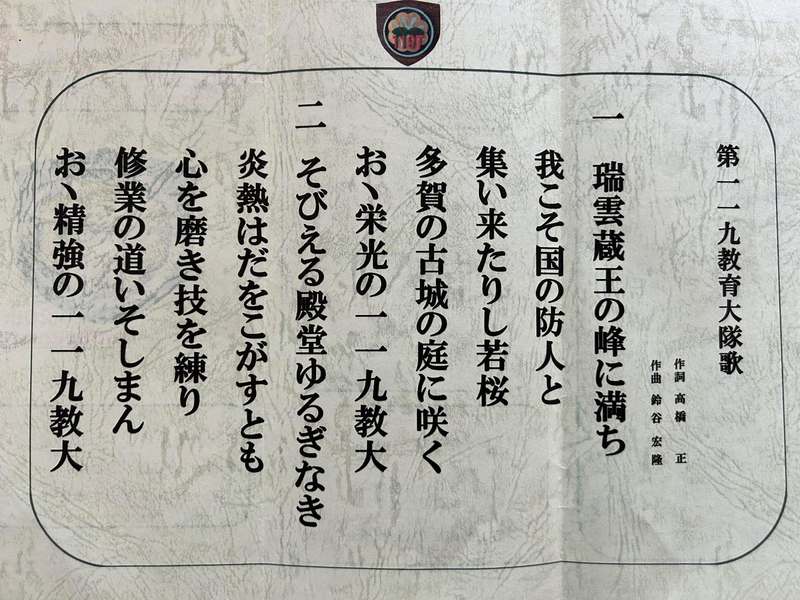 第一一九教育大隊歌
作詞 高橋 正
作曲 鈴谷 宏隆
一 瑞雲蔵王の峰に満ち
我こそ国の防人と
集い来たりし若桜
多賀の古城の庭に咲く
おヽ栄光の一一九教大
二 そびえる殿堂ゆるぎなき
炎熱はだをこがすとも
心を磨き技を練り
修業の道いそしまん
おヽ精強の一一九教大